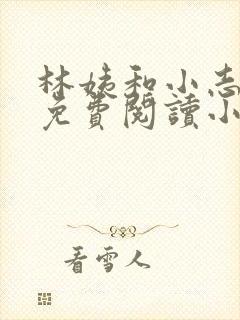 林姨和小志
免費閱讀小
看雪人